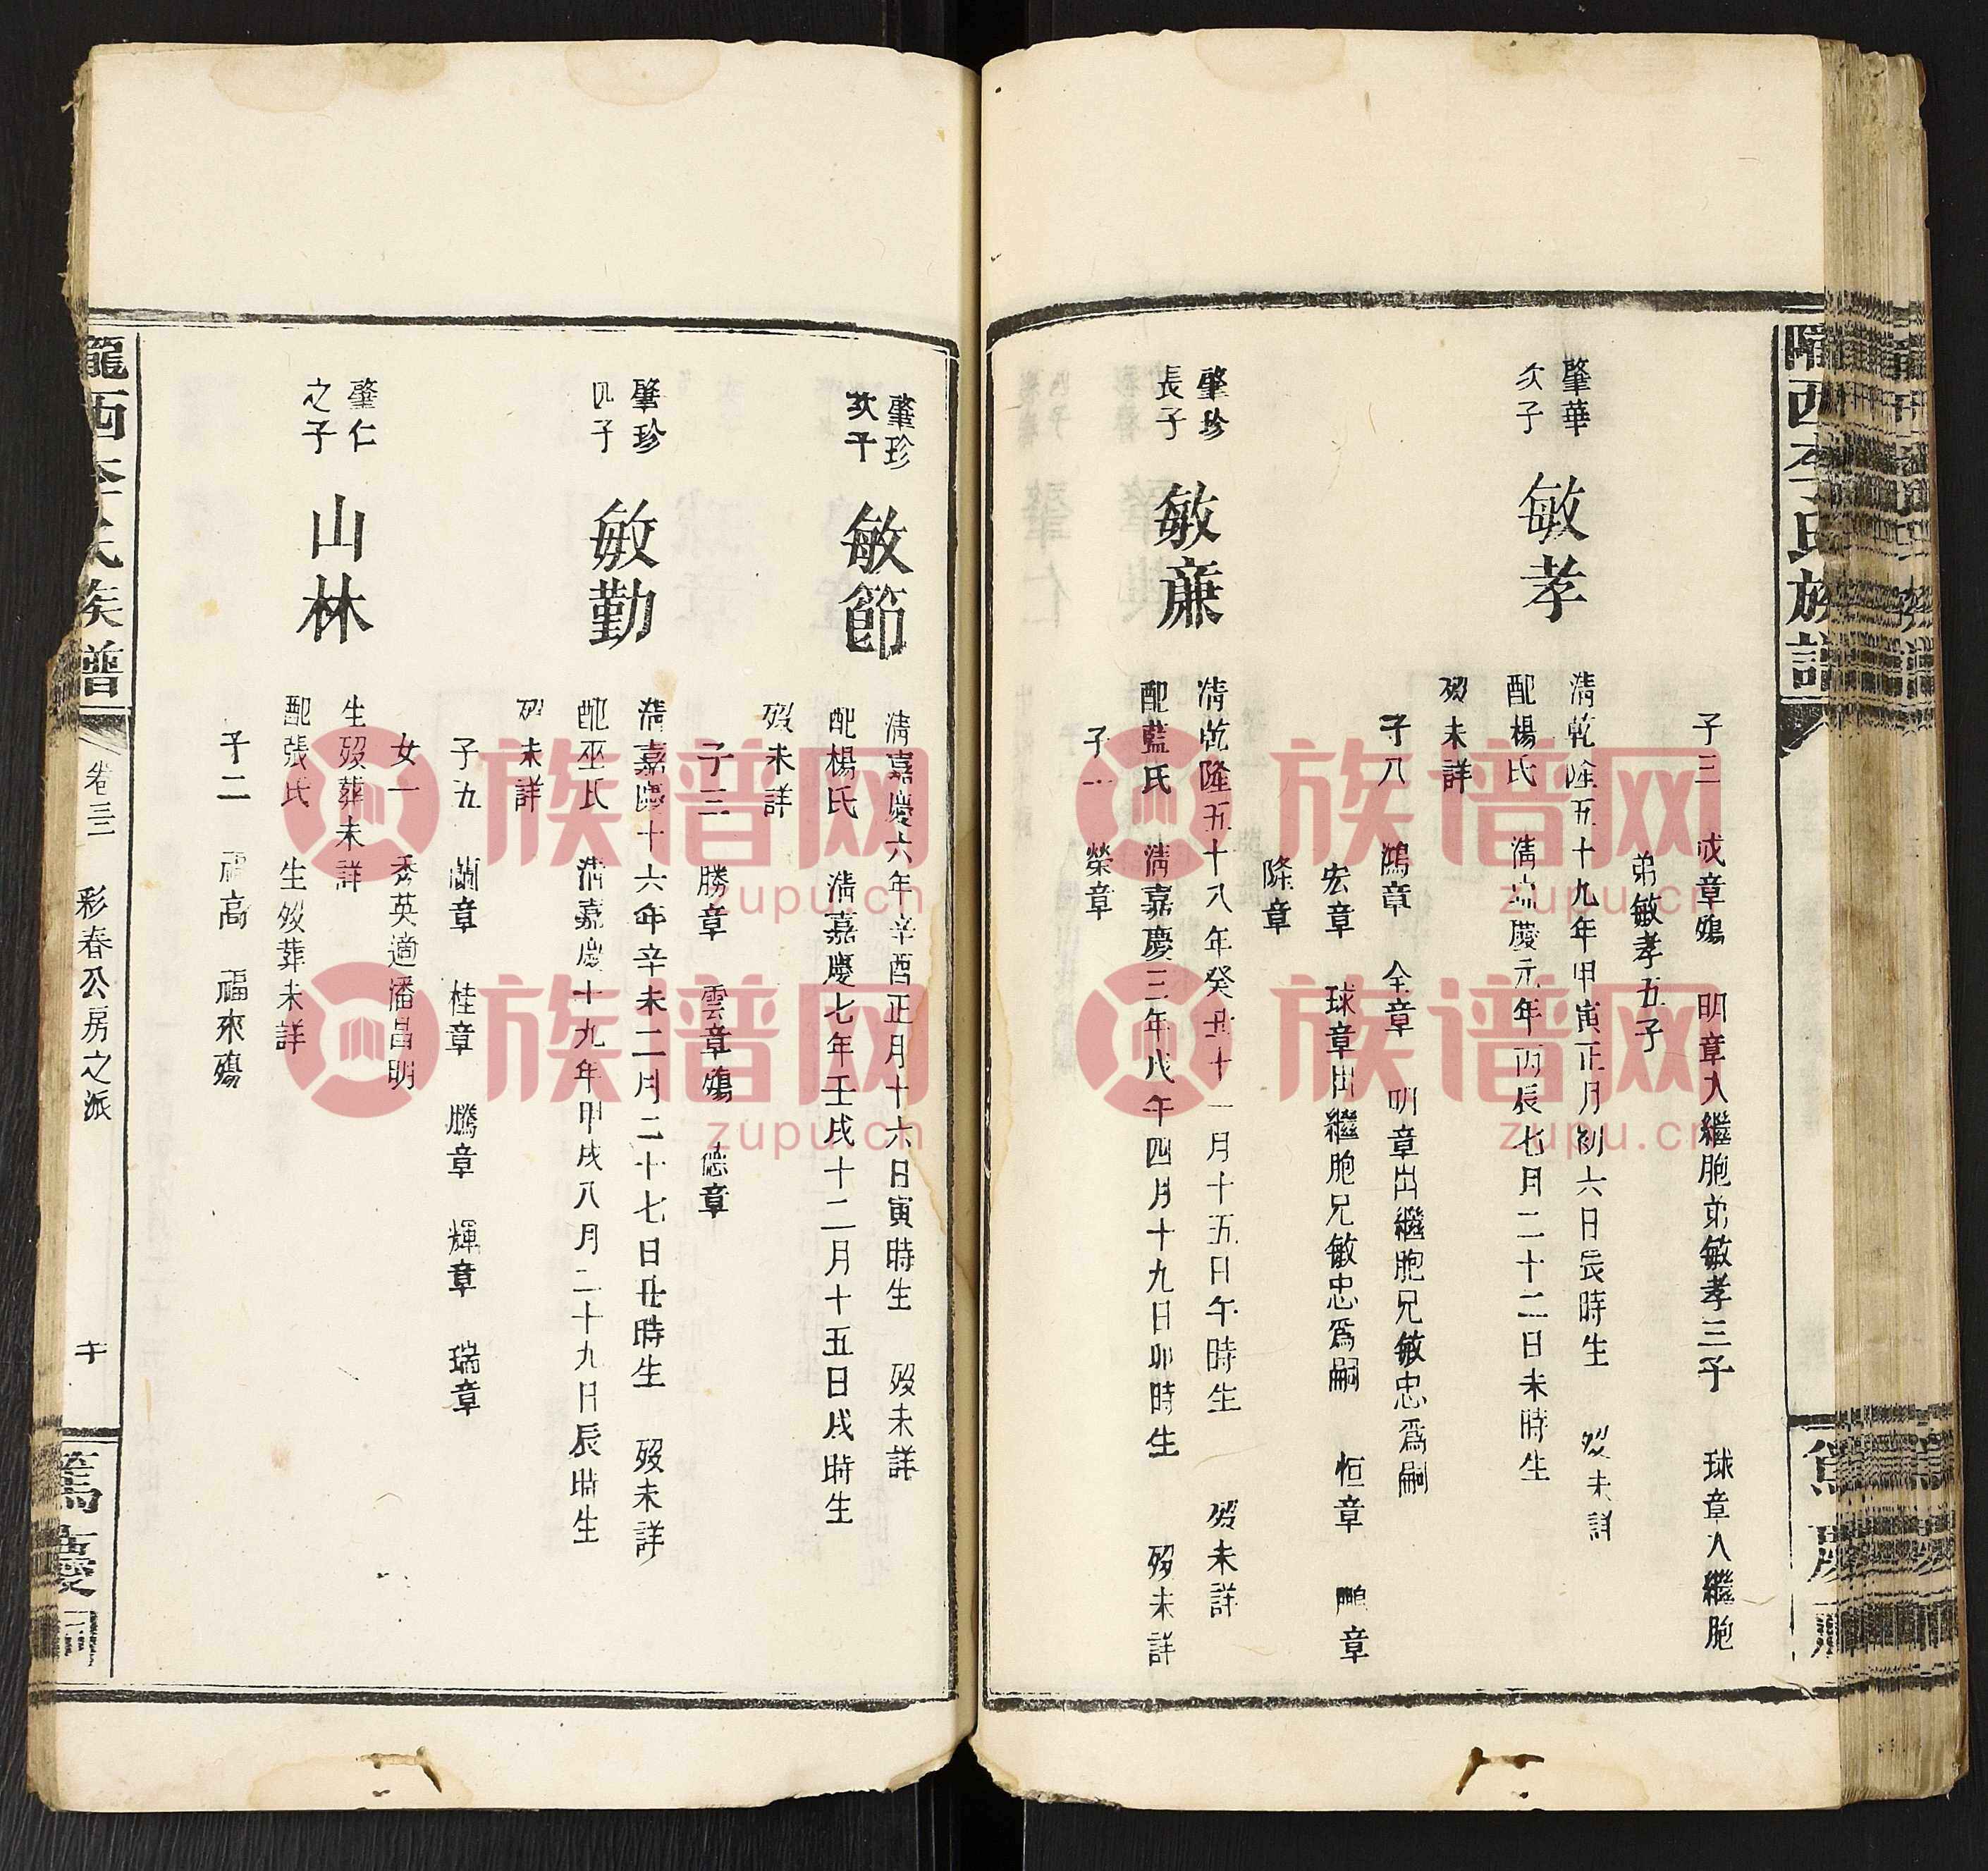 隴西李氏族譜
子三 成章殤 明章入繼胞弟敏孝三子 球章入繼胞
弟敏孝五子
肇華
次子
敏孝
清乾隆五十九年甲寅正月初六日辰時生 歿未詳
配楊氏 清嘉慶元年丙辰七月二十二日未時生
歿未詳
子八 鴻章 全章 明章出繼胞兄敏忠爲嗣
宏章 球章出繼胞兄敏忠爲嗣 恒章 鵬章
隆章
肇珍
長子
敏廉
清乾隆五十八年癸丑十一月十五日午時生 歿未詳
配藍氏 清嘉慶三年戊午四月十九日卯時生 歿未詳
子一 榮章
肇珍
次子
敏節
清嘉慶六年辛酉正月十六日寅時生 歿未詳
配楊氏 清嘉慶七年壬戌十二月十五日戌時生
歿未詳
子三 勝章 雲章殤 德章
肇珍
四子
敏勤
清嘉慶十六年辛未二月二十七日丑時生 歿未詳
配巫氏 清嘉慶十九年甲戌八月二十九日辰時生
歿未詳
子五 蘭章 桂章 騰章 輝章 瑞章
女一 秀英適潘昌明
肇仁
之子
山林
生歿葬未詳
配張氏 生歿葬未詳
子二 福高 福來殤
隴西李氏族譜
卷三
彩春公房之派
篤慶
族谱网
zupu.cn
族谱网
zupu.cn
族谱网
zupu.cn
族谱网
zupu.cn